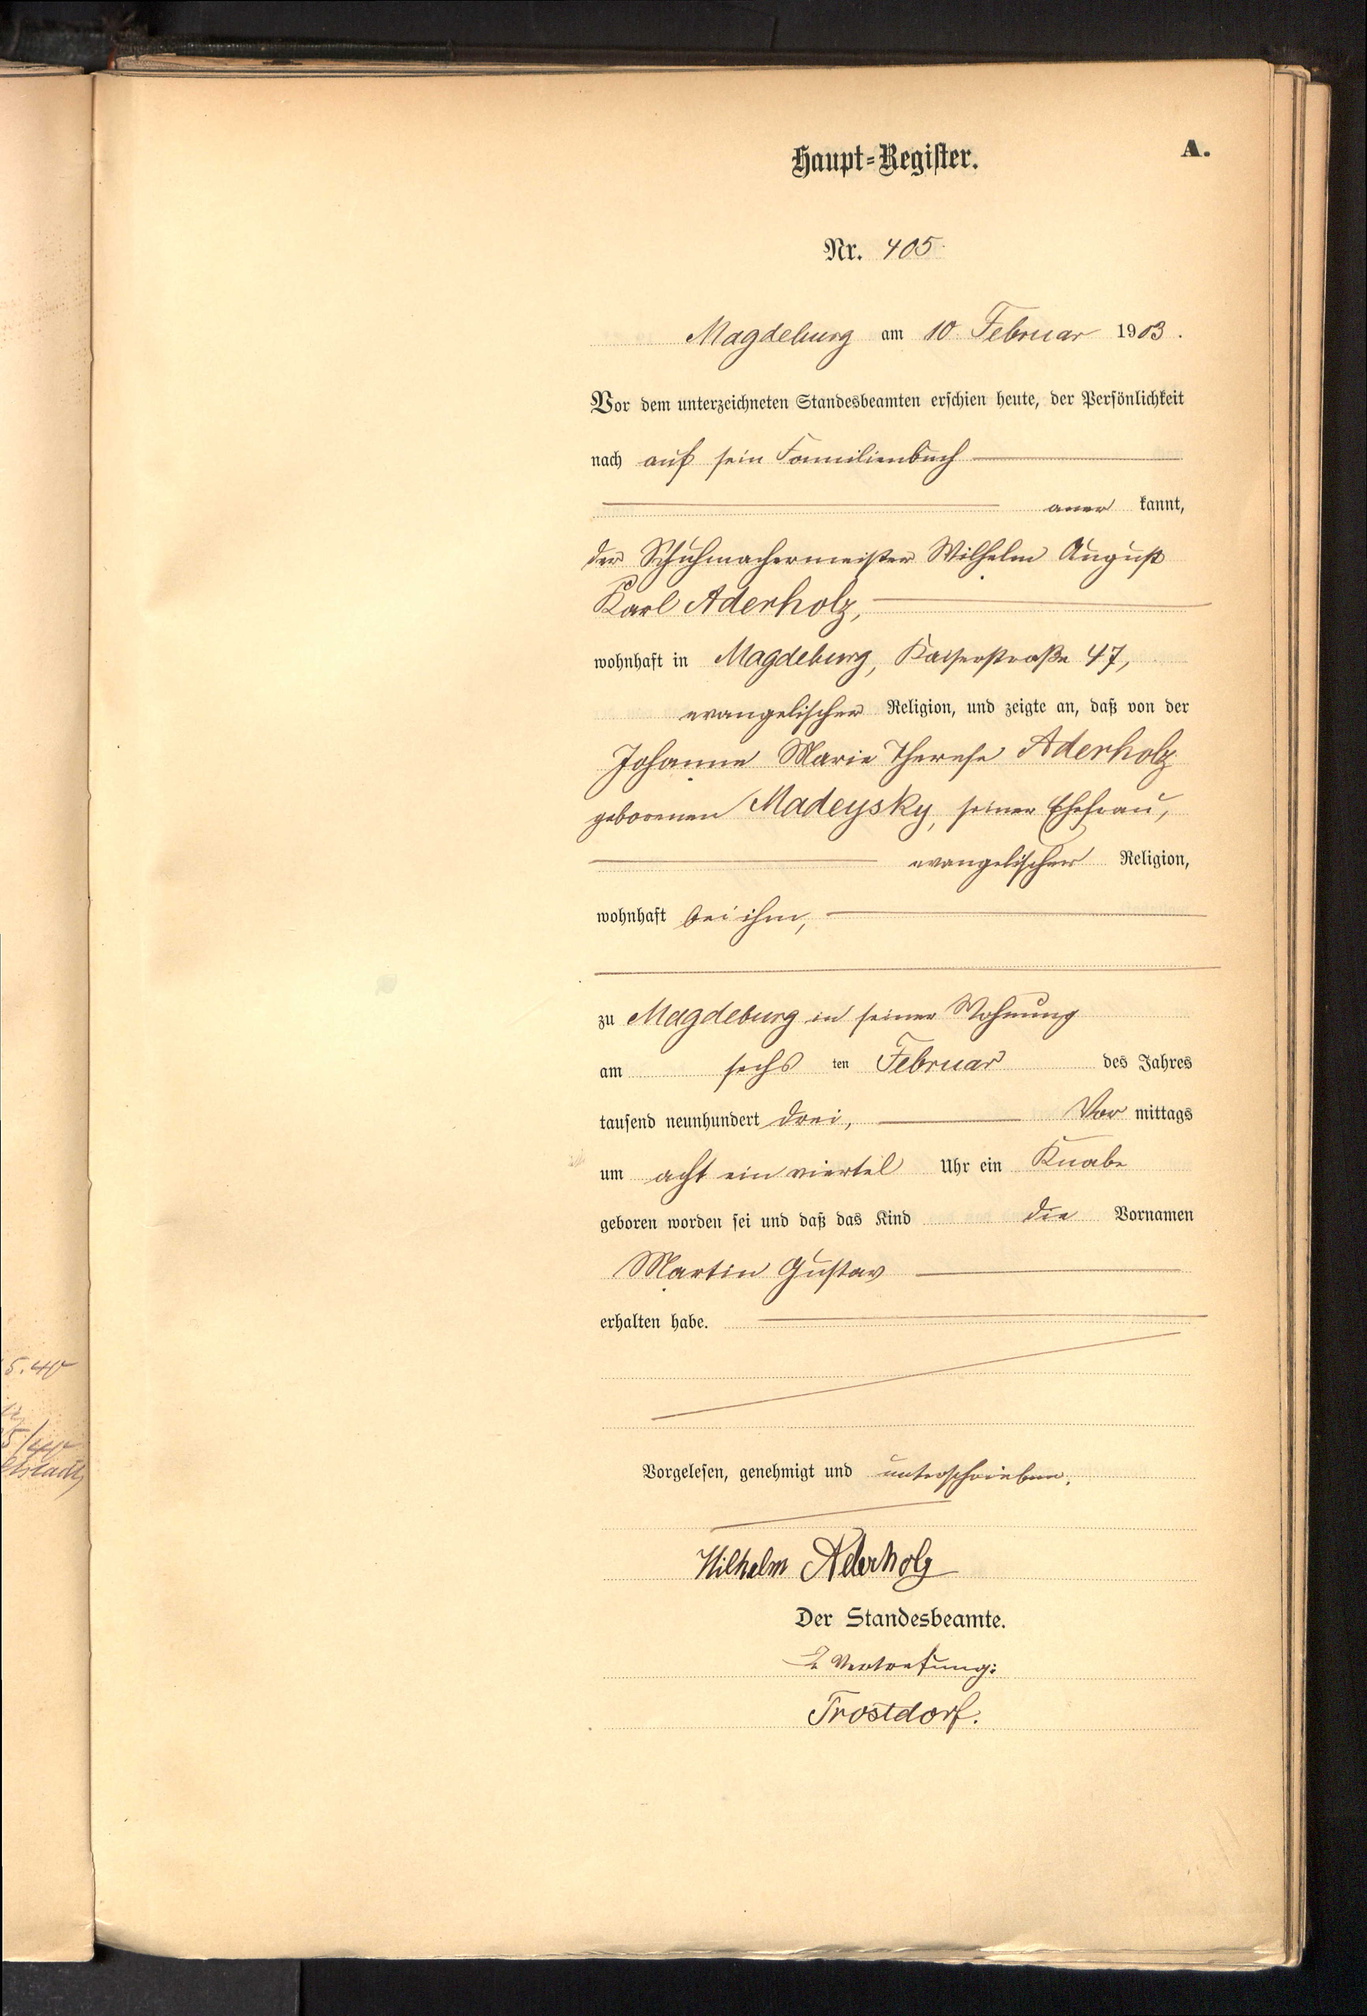 Haupt-Register.
A.
Nr. 405.
Magdeburg am 10. Februar 1903.
Vor dem unterzeichneten Standesbeamten erschien heute, der Persönlichkeit
nach auf sein Familienbuch
aner kannt,
der Schuhmachermeister Wilhelm August
Karl Aderholz,
wohnhaft in Magdeburg, Kaiserstraße 47,
evangelischer Religion, und zeigte an, daß von der
Johanne Marie Therese Aderholz
geborenen Madeysky, seiner Ehefrau,
evangelischer Religion,
wohnhaft bei ihm,
zu Magdeburg in seiner Wohnung
am sechs ten Februar des Jahres
tausend neunhundert drei, Vor mittags
um acht ein viertel Uhr ein Knabe
geboren worden sei und daß das Kind die Vornamen
Martin Gustav
erhalten habe.
5.40
5/40
Vorgelesen, genehmigt und unterschrieben.
Wilhelm Aderholz
Der Standesbeamte.
Vertretung:
Trostdorf.